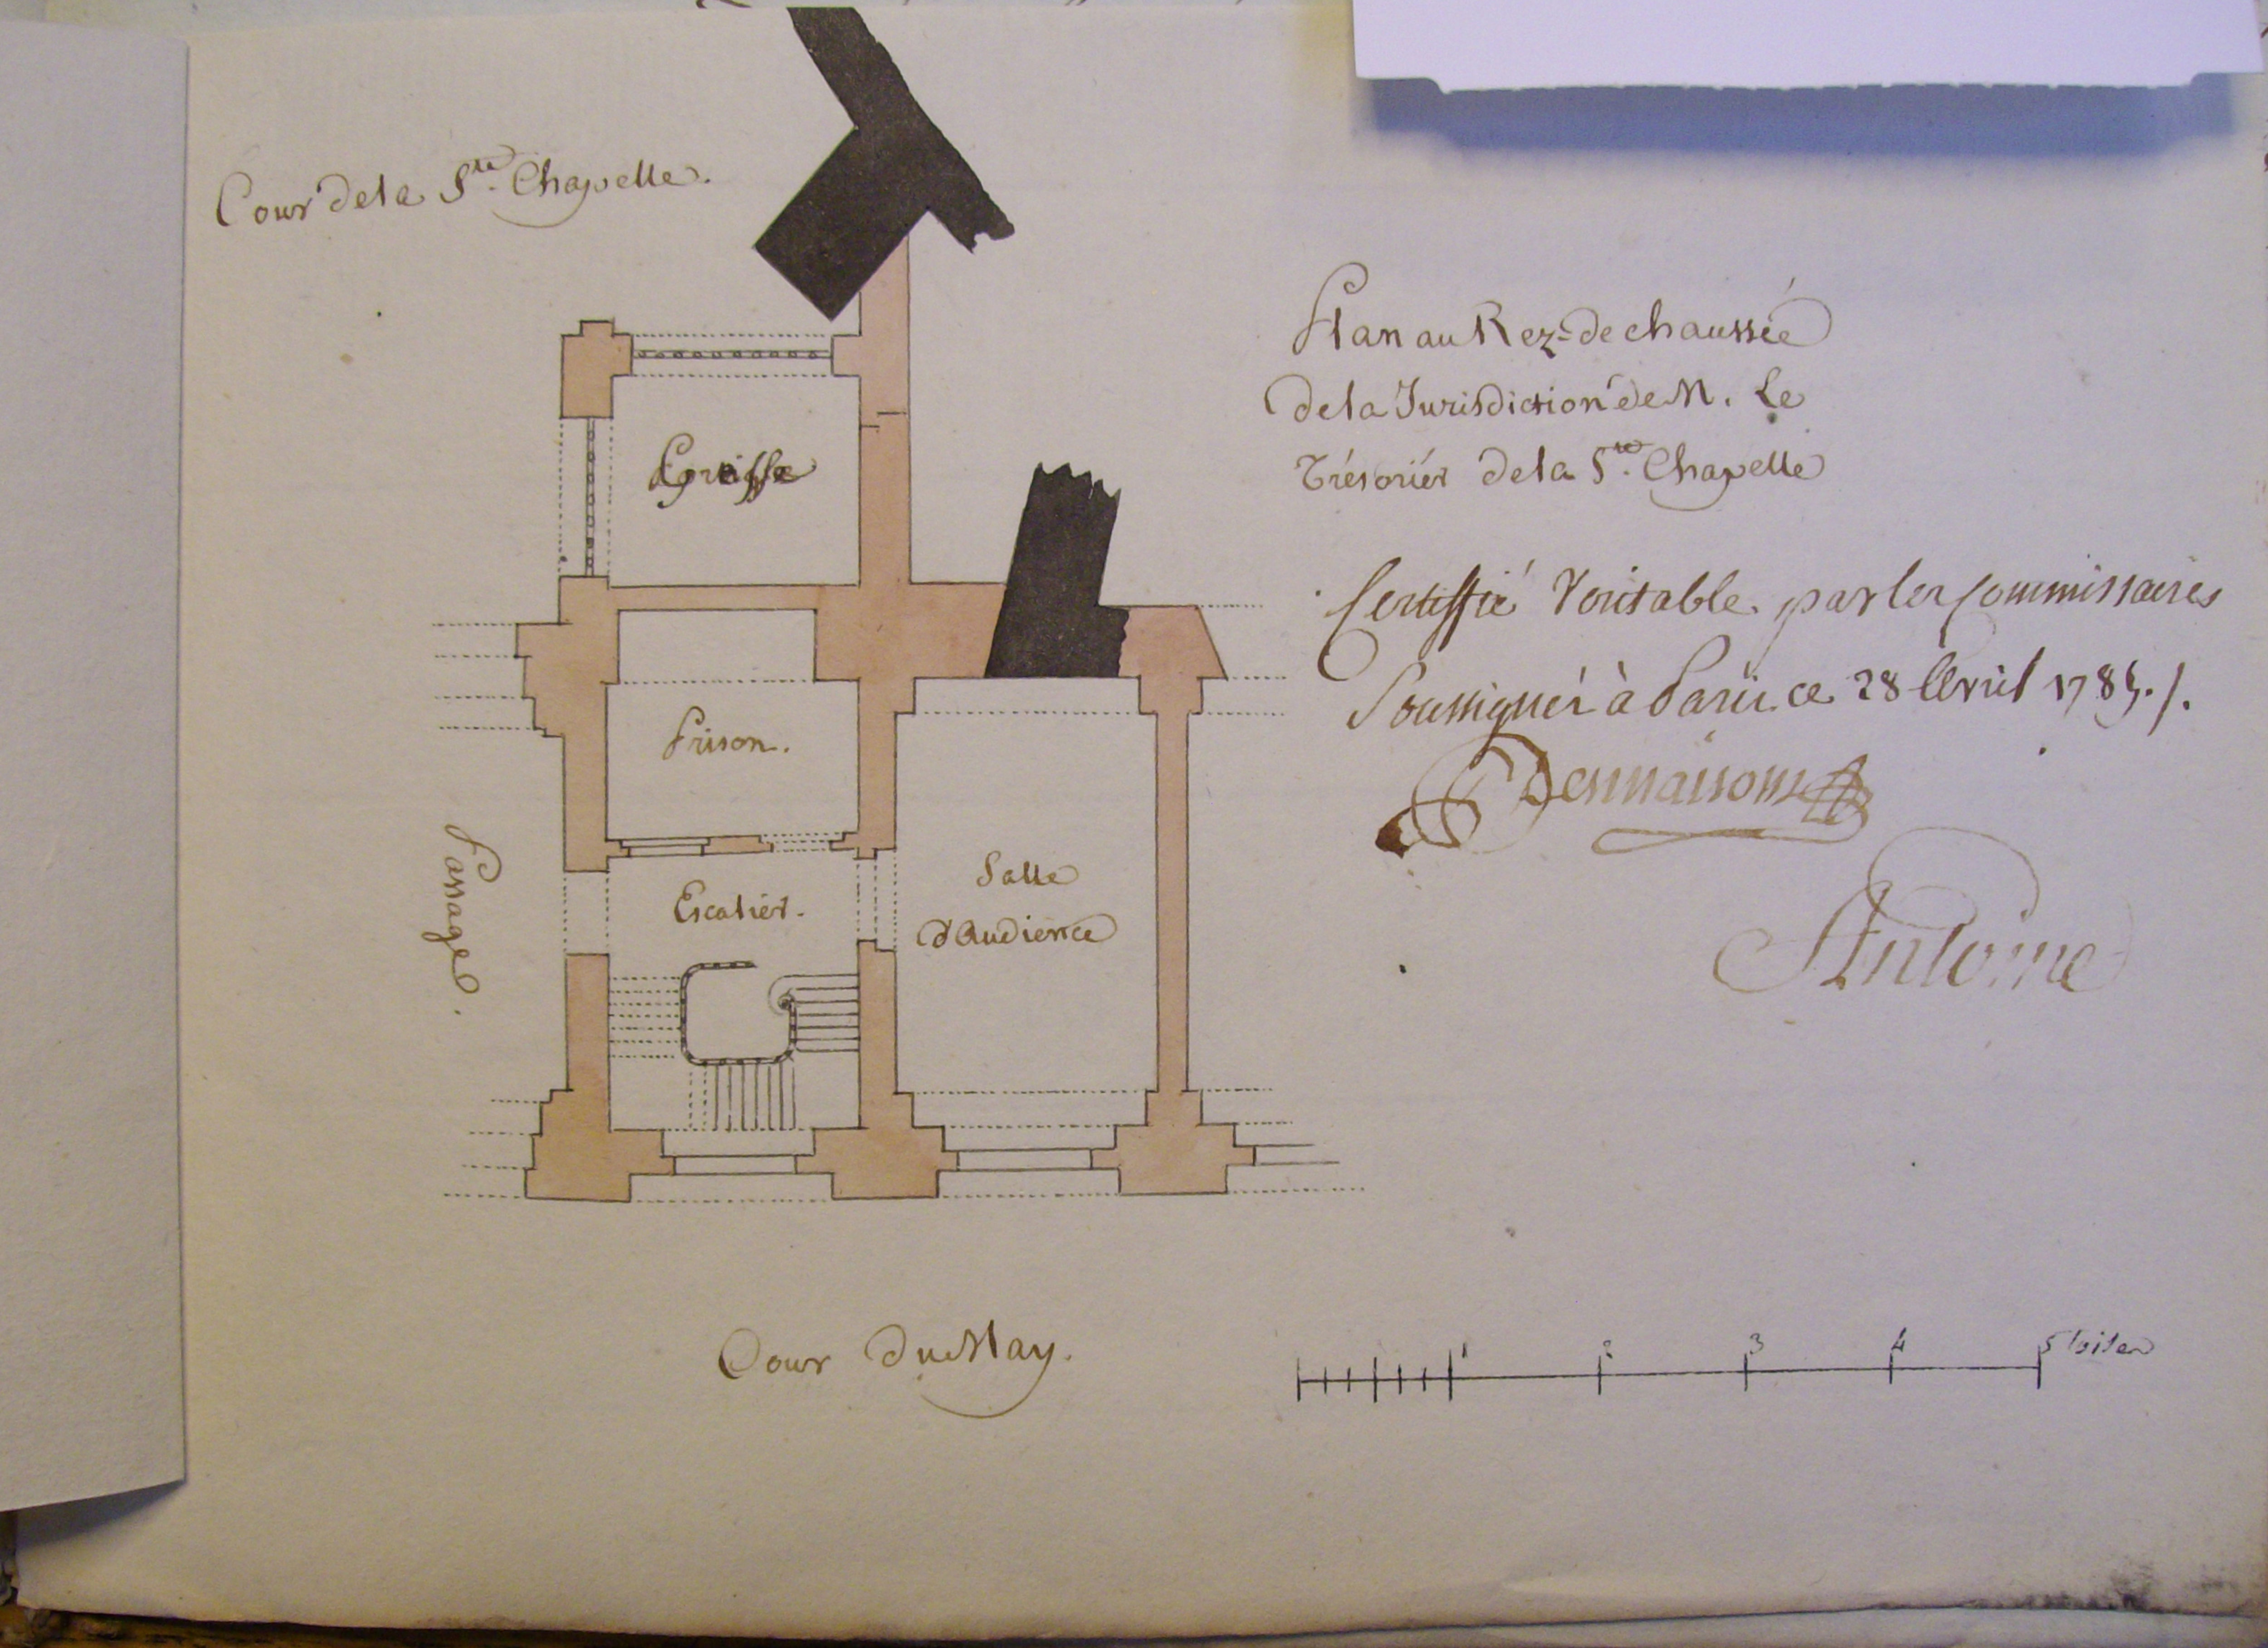 Cour de la Ste. Chapelle.
Plan au Rez-de chaussée
de la Jurisdiction de M. Le
Trésoriér de la Ste. Chapelle
Certiffié Veritable par les Commissaires
Soussignés à Paris ce 28 Avril 1785./.
Desmaisons
Antoine
Prison.
Passage.
Escaliér.
Salle
d'Audience
Cour du May.
1 2 3 4 5 toises